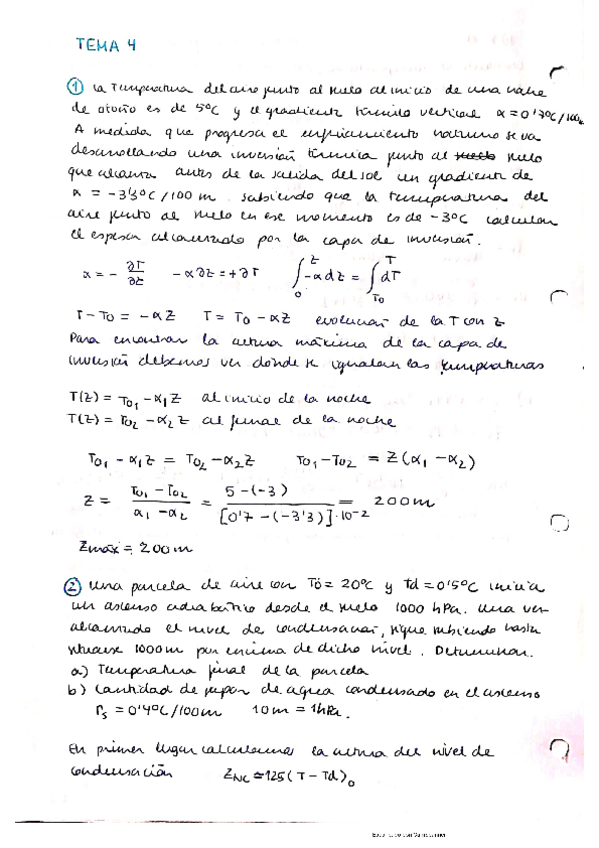 TEMA 4
① La Temperatura del aire junto al suelo al inicio de una noche
de otoño es de 5ºC y el gradiente térmico vertical α = 0'7ºC/100m
A medida que progresa el enfriamiento nocturno se va
desarrollando una inversión térmica junto al suelo suelo
que alcanza antes de la salida del sol un gradiente de
α = -3'3ºC/100 m. sabiendo que la temperatura del
aire junto al suelo en ese momento es de -3ºC calcular
el espesor alcanzado por la capa de inversión.
α = - ∂T/∂z   -α∂z = +∂T   ∫₀^z -α dz = ∫_{T₀}^T dT
T - T₀ = -αz   T = T₀ - αz   evolución de la T con z
Para encontrar la altura máxima de la capa de
inversión debemos ver donde se igualan las temperaturas
T(z) = T₀₁ - α₁z   al inicio de la noche
T(z) = T₀₂ - α₂z   al final de la noche
T₀₁ - α₁z = T₀₂ - α₂z   T₀₁ - T₀₂ = z(α₁ - α₂)
z = (T₀₁ - T₀₂)/(α₁ - α₂) = (5-(-3))/([0'7-(-3'3)]·10⁻²) = 200m
Zmáx = 200m
② Una parcela de aire con To = 20ºC y Td = 0'5ºC inicia
un ascenso adiabático desde el suelo 1000 hPa. Una vez
alcanzado el nivel de condensación, sigue subiendo hasta
situarse 1000m por encima de dicho nivel. Determinar.
a) Temperatura final de la parcela
b) Cantidad de vapor de agua condensado en el ascenso
Γs = 0'4ºC/100m   10m = 1hPa.
En primer lugar calculamos la altura del nivel de
condensación   Z_NC ≃ 125(T - Td)₀